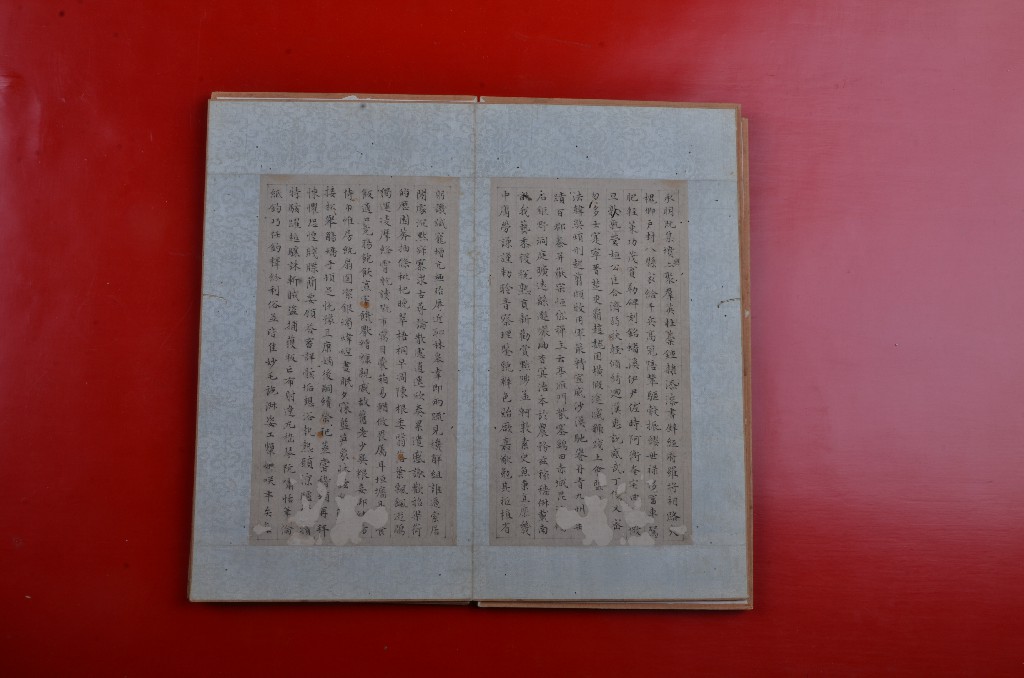 承明既集墳典亦聚羣英杜藁鍾隸漆書壁經府羅將相路俠
槐卿戶封八縣家給千兵高冠陪輦驅轂振纓世祿侈富車駕
肥輕策功茂實勒碑刻銘磻溪伊尹佐時阿衡奄宅曲阜微
旦孰營桓公匡合濟弱扶傾綺迴漢惠說感武丁俊乂密
勿多士寔寧晉楚更霸趙魏困橫假途滅虢踐土會盟
法韓弊煩刑起翦頗牧用軍最精宣威沙漠馳譽丹青九州禹
跡百郡秦并嶽宗恒岱禪主云亭雁門紫塞雞田赤城昆池
石鉅野洞庭曠遠緜邈巖岫杳冥治本於農務茲稼穡俶載南
畝我藝黍稷稅熟貢新勸賞黜陟孟軻敦素史魚秉直庶幾
中庸勞謙謹勑聆音察理鑒貌辨色貽厥嘉猷勉其祗植省
躬譏誡寵增抗極殆辱近恥林皋幸即兩疏見機解組誰逼索居
閑處沉默寂寥求古尋論散慮逍遙欣奏累遣慼謝歡招渠荷
的歷園莽抽條枇杷晚翠梧桐早凋陳根委翳落葉飄颻遊鵾
獨運凌摩絳霄耽讀翫市寓目囊箱易輶攸畏屬耳垣牆具膳餐
飯適口充腸飽飫烹宰飢厭糟糠親戚故舊老少異糧妾御績紡
侍巾帷房紈扇圓潔銀燭煒煌晝眠夕寐藍筍象床弦歌
接杯舉觴矯手頓足悅豫且康嫡後嗣續祭祀蒸嘗稽顙再拜
悚懼恐惶牋牒簡要顧答審詳骸垢想浴執熱願涼驢騾犢
特駭躍超驤誅斬賊盜捕獲叛亡布射遼丸嵇琴阮嘯恬筆倫
紙鈞巧任釣釋紛利俗並皆佳妙毛施淑姿工顰妍笑年矢每